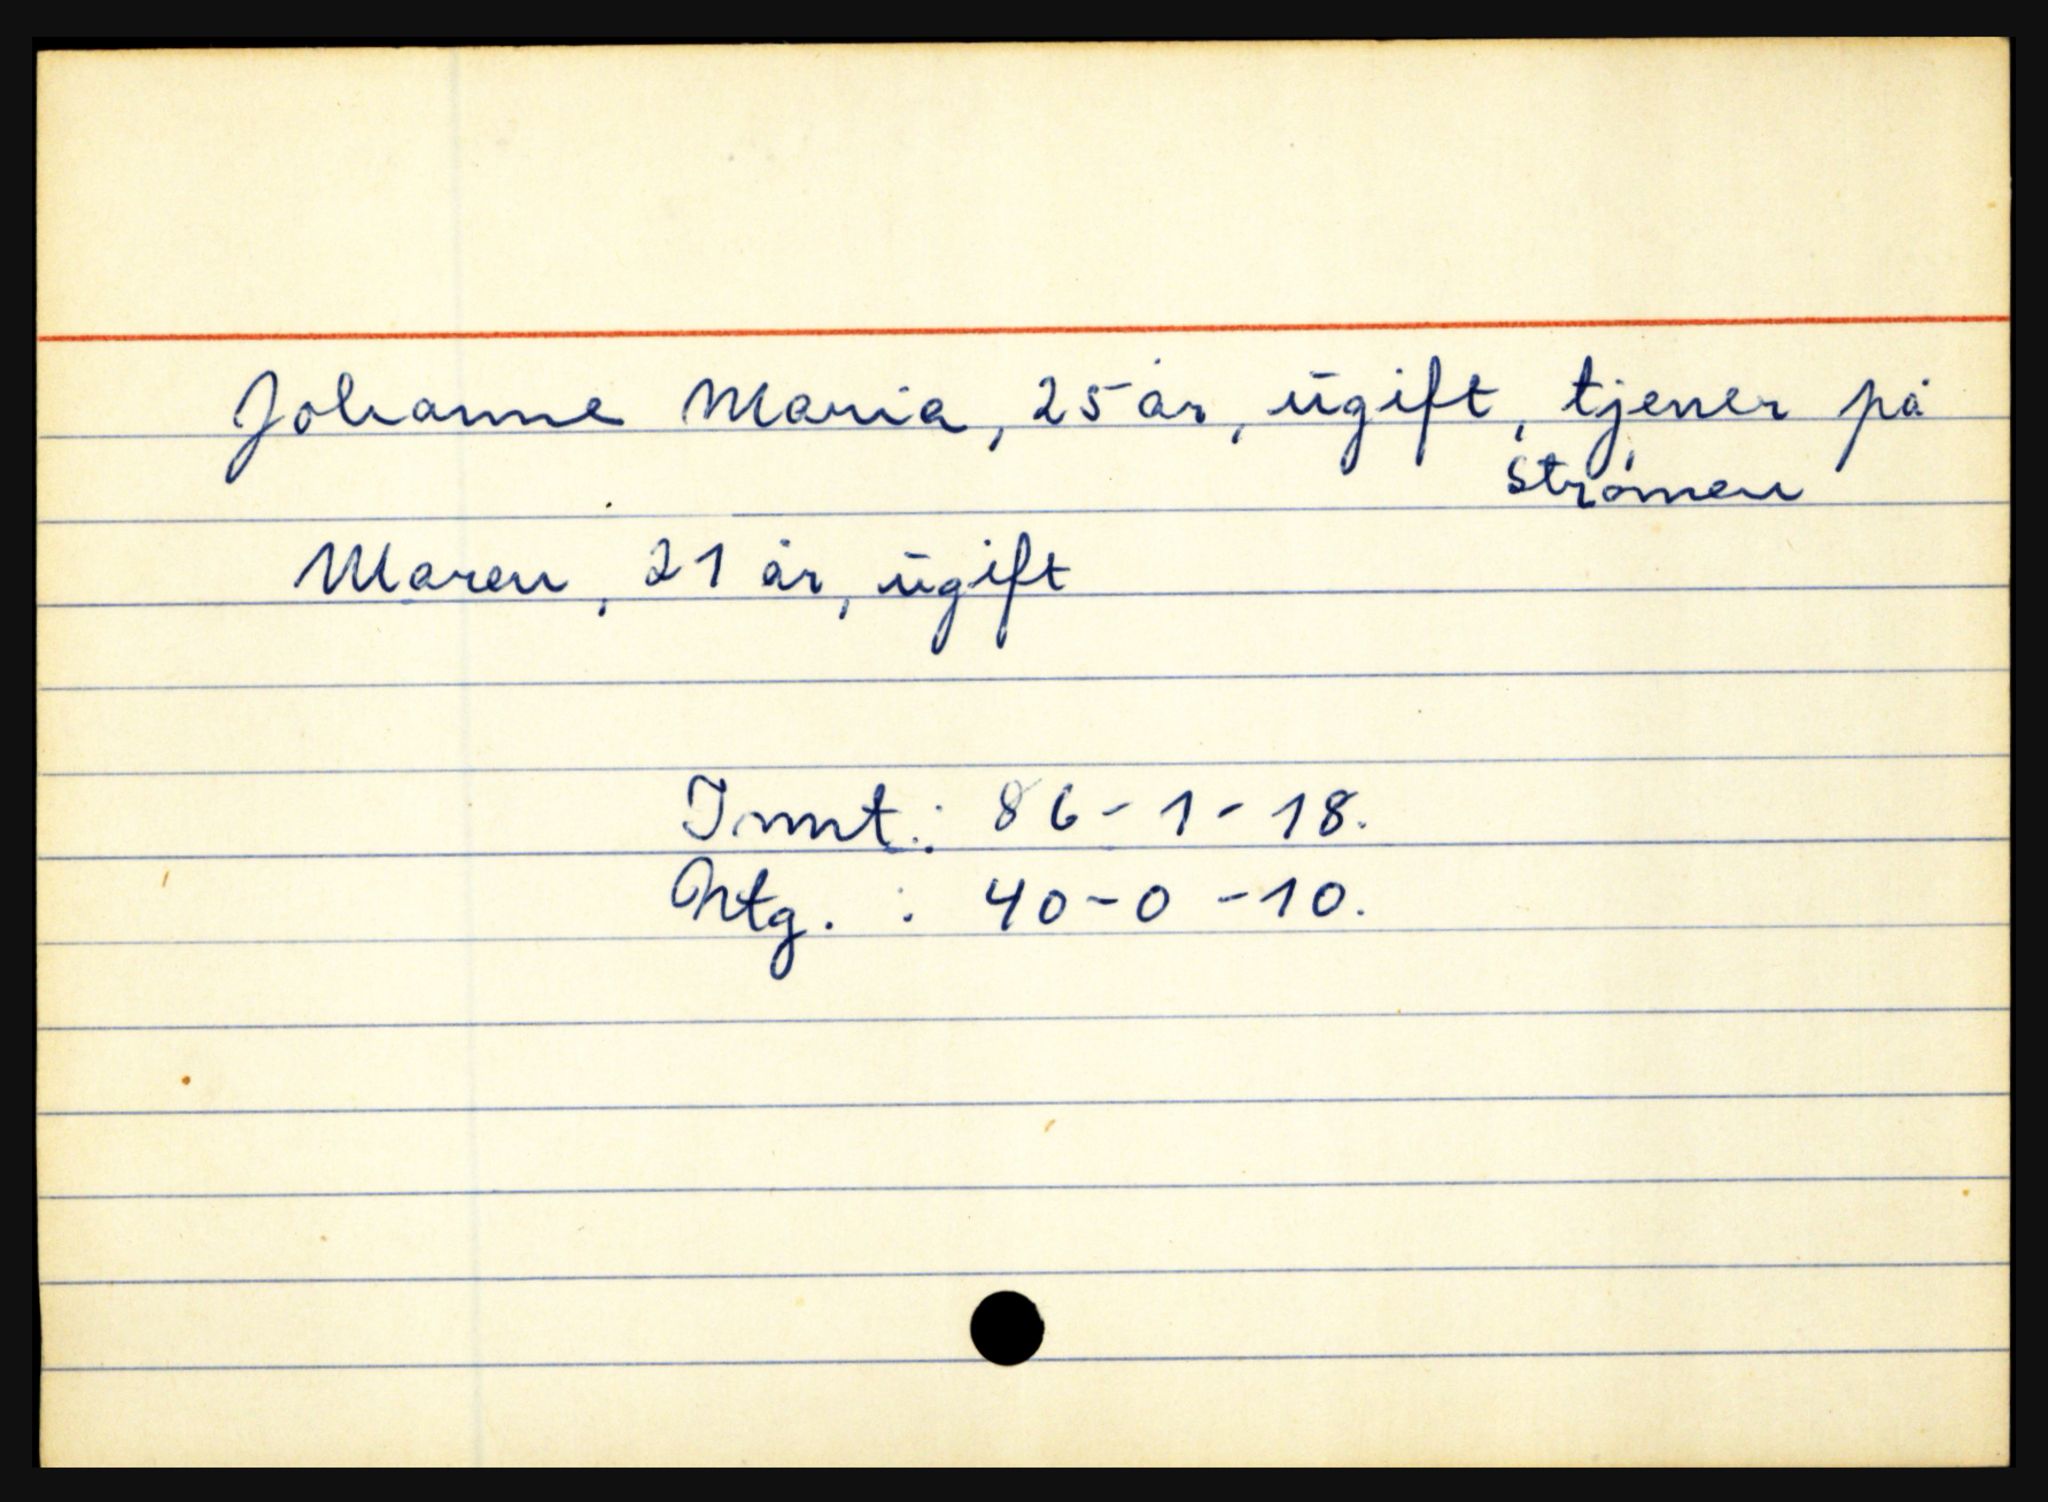 Johanne Maria, 25 år, ugift, tjener på
Strømen
Maren, 21 år, ugift
Innt.: 86-1-18.
Utg. : 40-0-10.